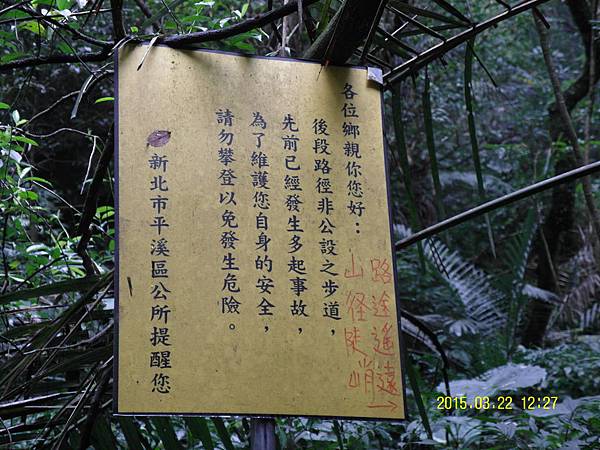 各位鄉親你您好：
後段路徑非公設之步道，
先前已經發生多起事故，
為了維護您自身的安全，
請勿攀登以免發生危險。
新北市平溪區公所提醒您
路途遙遠→
山徑陡峭
2015.03.22 12:27